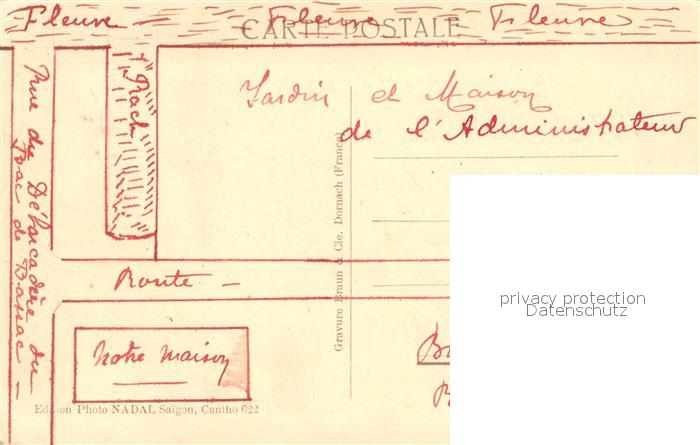 Fleuve Fleuve Fleuve
CARTE POSTALE
Rach
Jardin et Maison
de l'Administrateur
Rue du Débarcadère du
Bac de Bassac -
Route -
Notre maison
Gravure Braun & Cie. Dornach (France)
Edition Photo NADAL Saïgon, Cantho 622
privacy protection
Datenschutz